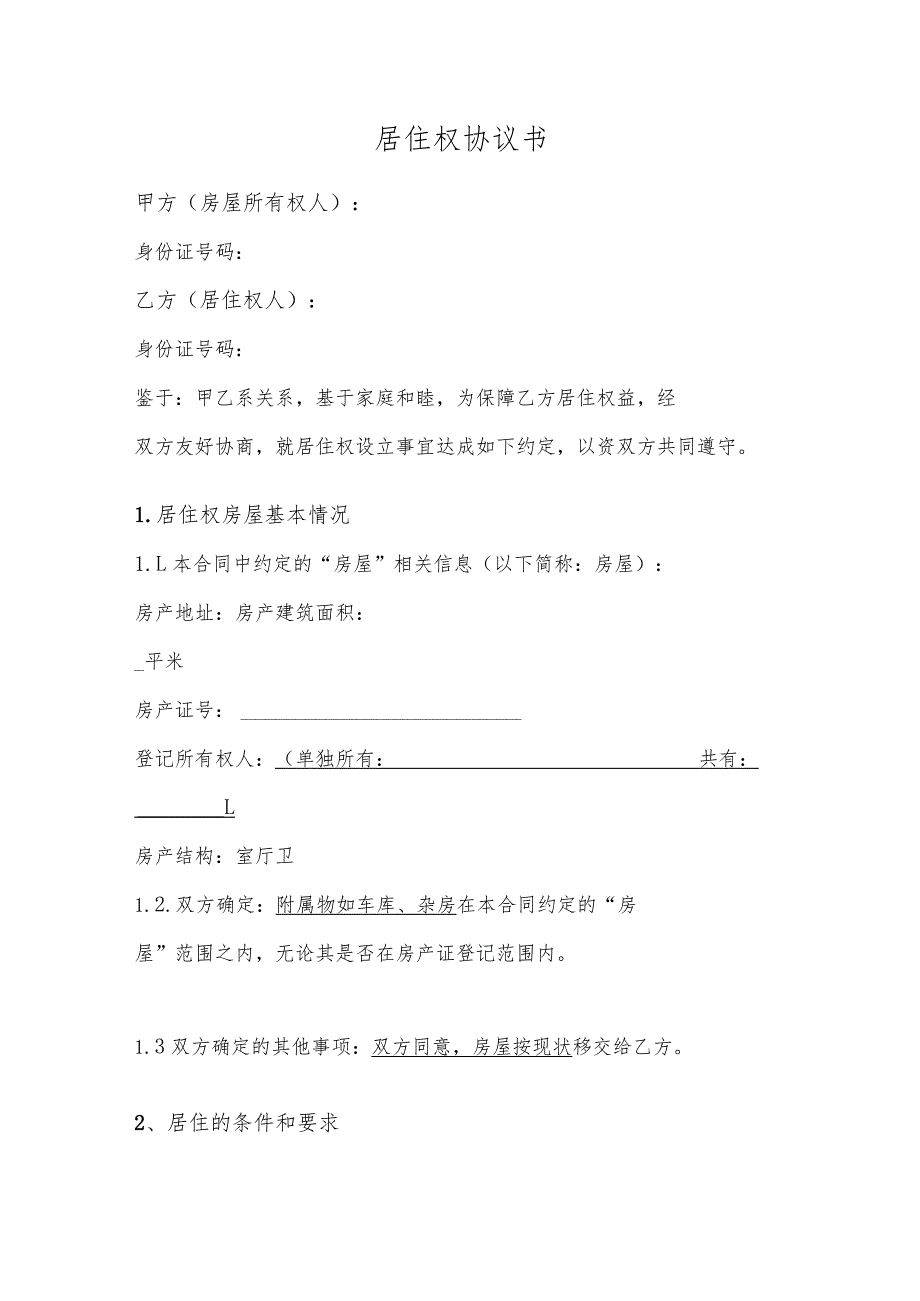 居住权协议书
甲方（房屋所有权人）：
身份证号码：
乙方（居住权人）：
身份证号码：
鉴于：甲乙系关系，基于家庭和睦，为保障乙方居住权益，经
双方友好协商，就居住权设立事宜达成如下约定，以资双方共同遵守。
1.居住权房屋基本情况
1.L本合同中约定的“房屋”相关信息（以下简称：房屋）：
房产地址：房产建筑面积：
_平米
房产证号：____________________________
登记所有权人：（单独所有： 共有：
_________L
房产结构：室厅卫
1.2.双方确定：附属物如车库、杂房在本合同约定的“房
屋”范围之内，无论其是否在房产证登记范围内。
1.3双方确定的其他事项：双方同意，房屋按现状移交给乙方。
2、居住的条件和要求